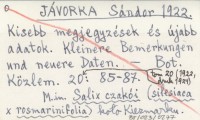 JÁVORKA Sándor 1922.
Kisebb megjegyzések és újabb
adatok. Kleinere Bemerkungen
und neuere Daten. — Bot.
Közlem. 20: 85-87. Tom 20 (1922,
M.in. Salix czakói (silesiaca
x rosmarinifolia) koło Kiezmarku.